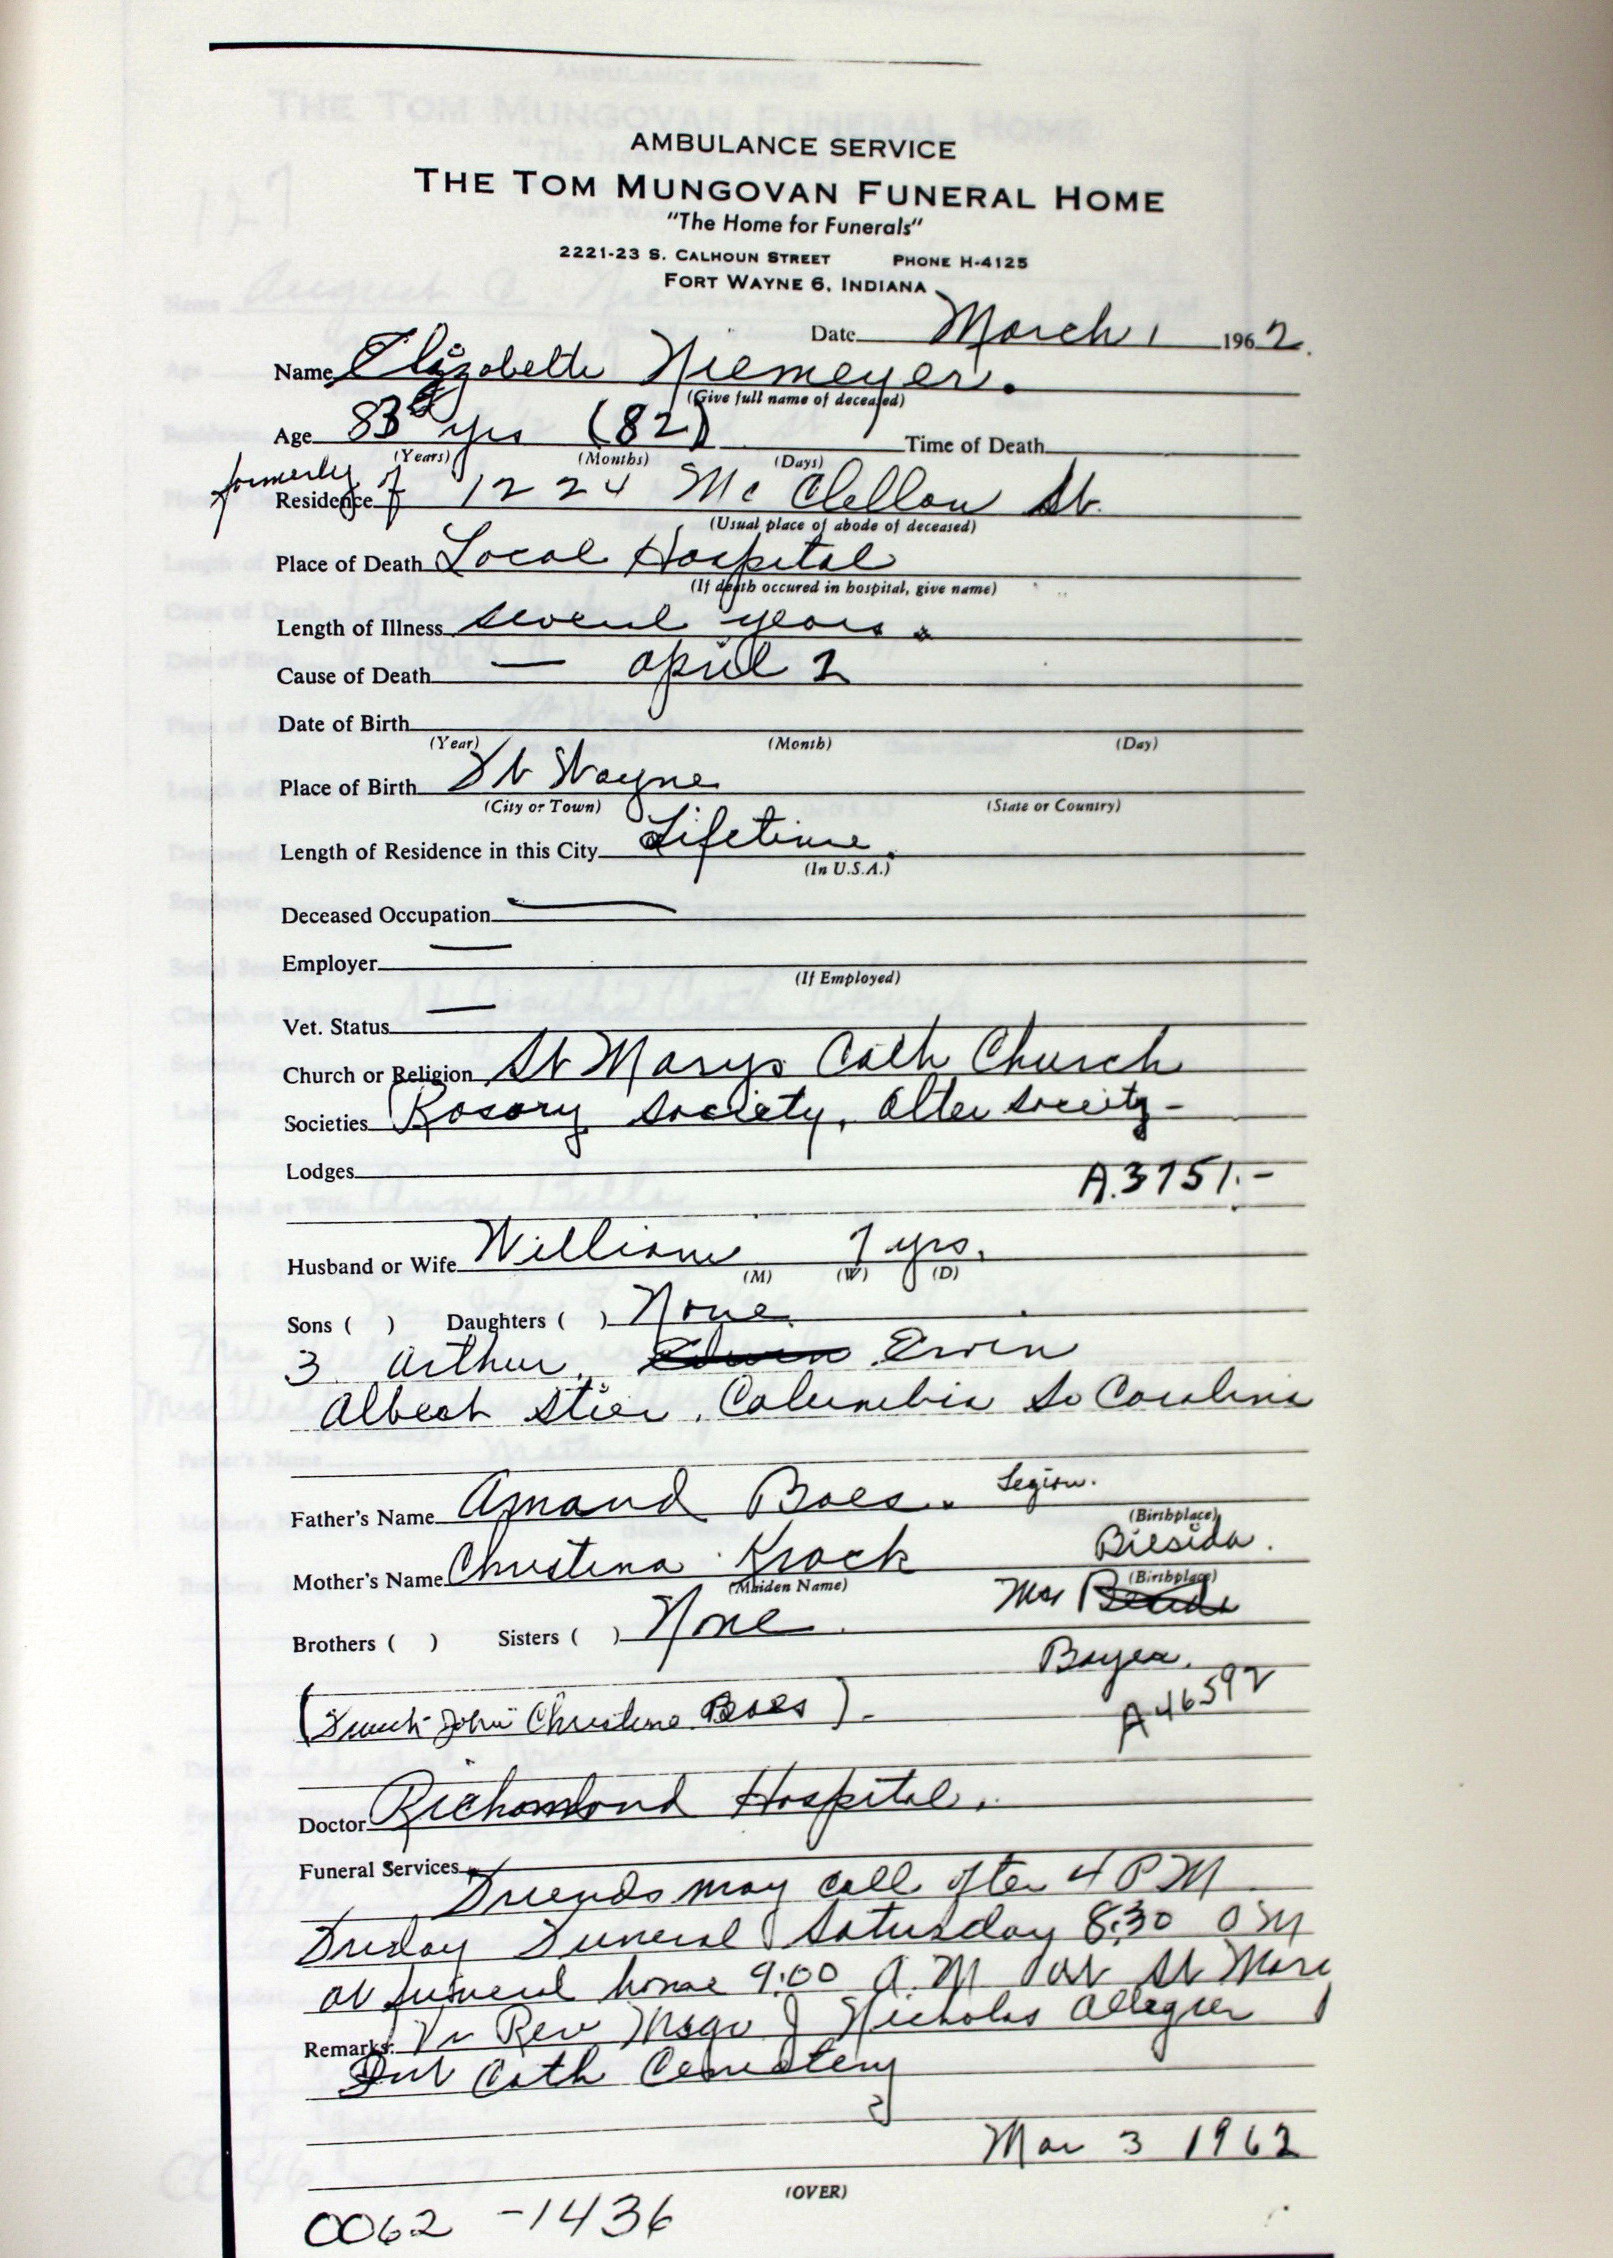 AMBULANCE SERVICE
THE TOM MUNGOVAN FUNERAL HOME
"The Home for Funerals"
2221-23 S. CALHOUN STREET PHONE H-4125
FORT WAYNE 6, INDIANA
Date March 1 1962.
Name Elizabeth Niemeyer.
(Give full name of deceased)
Age 83 yrs (82) Time of Death
(Years) (Months) (Days)
formerly of
Residence 1224 McClellan St.
(Usual place of abode of deceased)
Place of Death Local Hospital
(If death occured in hospital, give name)
Length of Illness several years.
Cause of Death — April 2
Date of Birth
(Year) (Month) (Day)
Place of Birth Ft Wayne
(City or Town) (State or Country)
Length of Residence in this City Lifetime.
(In U.S.A.)
Deceased Occupation —
Employer —
(If Employed)
Vet. Status —
Church or Religion St Marys Cath Church
Societies Rosary Society, Alter Society -
Lodges
A.3751.-
Husband or Wife William 7 yrs.
(M) (W) (D)
Sons ( ) Daughters ( ) None.
3 Arthur, Edwin Erwin
Albert Stier, Columbia So Carolina
Father's Name Amand Boes. Legion.
(Birthplace)
Mother's Name Christina Krock
(Maiden Name) (Birthplace)
Brothers ( ) Sisters ( ) None. Mrs
Boyer.
John Christine Boes).
A 46592
Doctor Richmond Hospital.
Funeral Services
Friends may call after 4 PM
Friday Funeral Saturday 8:30 AM
at funeral home 9:00 A.M at St Mary
Remarks: Vr Rev Msgr J Nicholas Allegier
Int Cath Cemetery
Mar 3 1962
(OVER)
0062 -1436